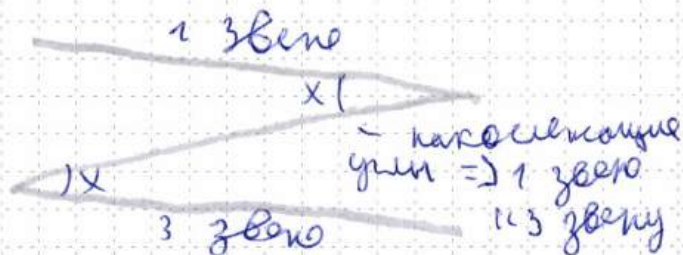 1 звено
x
- накослежащие
углы => 1 звено
x
3 звено
|| 3 звену